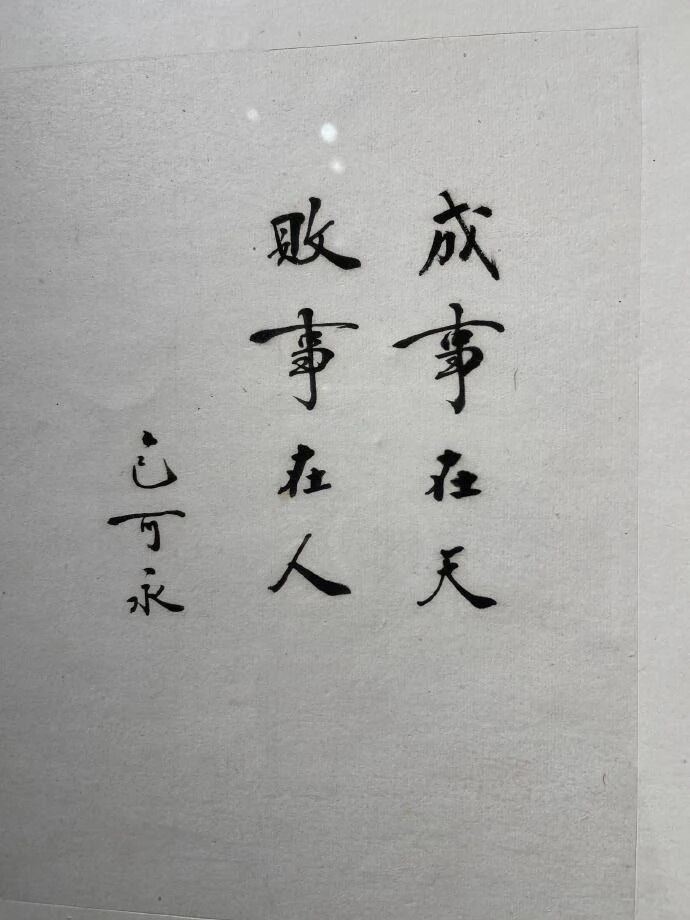 成事在天
敗事在人
包可永